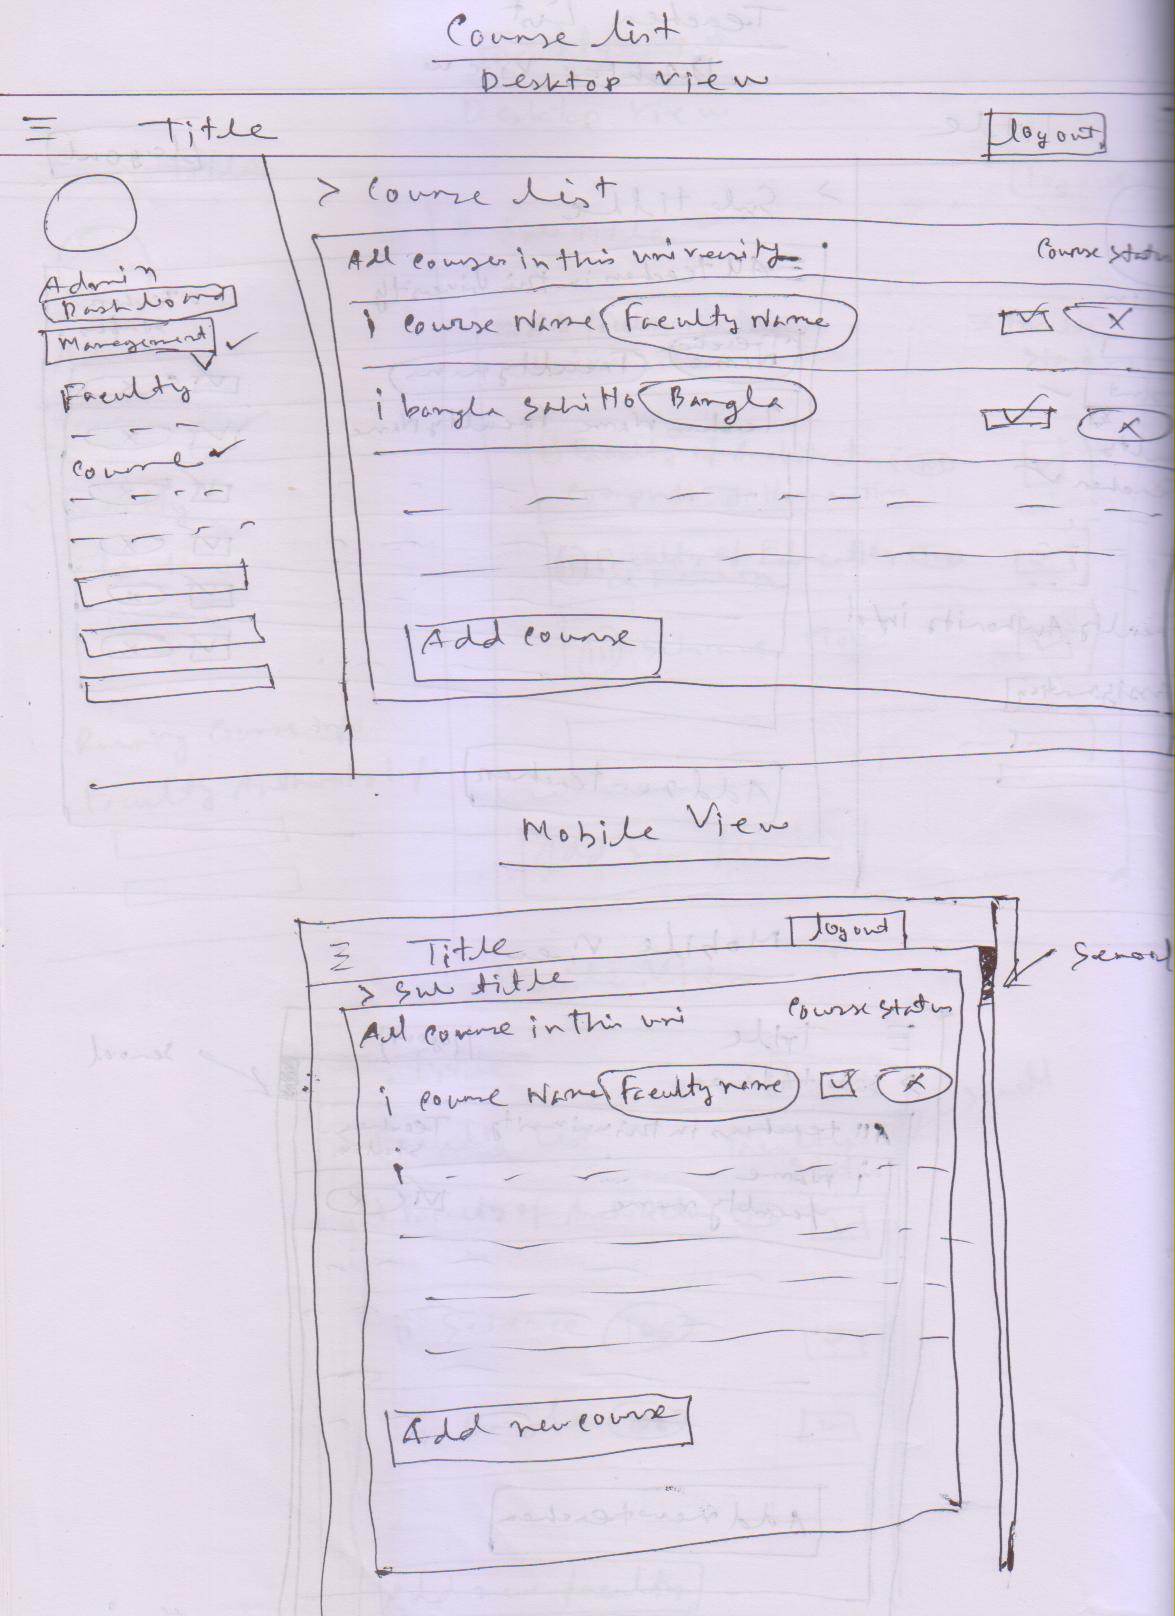 Course list
Desktop View
Title
logout
> Course list
Admin
Dashboard
Management
Faculty
Course
All courses in this university
Course Status
i Course Name Faculty Name
X
i bangla sahitto Bangla
X
Add course
Mobile View
Title
logout
> Sub title
All course in this uni
Course status
i course Name Faculty name
X
i
Add new course